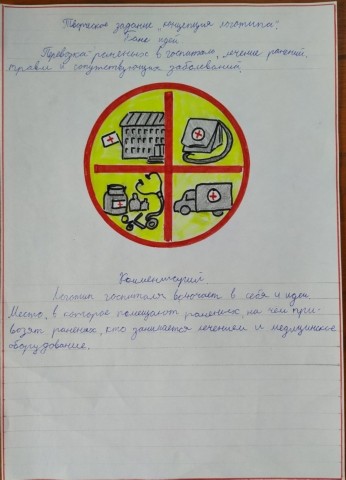 Творческое задание „концепция логотипа".
Банк идей
Перевозка раненых в госпитали, лечение ранений,
травм и сопутствующих заболеваний.
Комментарий
Логотип госпиталя включает в себя 4 идеи.
Место, в которое помещают раненых, на чём при-
возят раненых, кто занимается лечением и медицинское
оборудование.